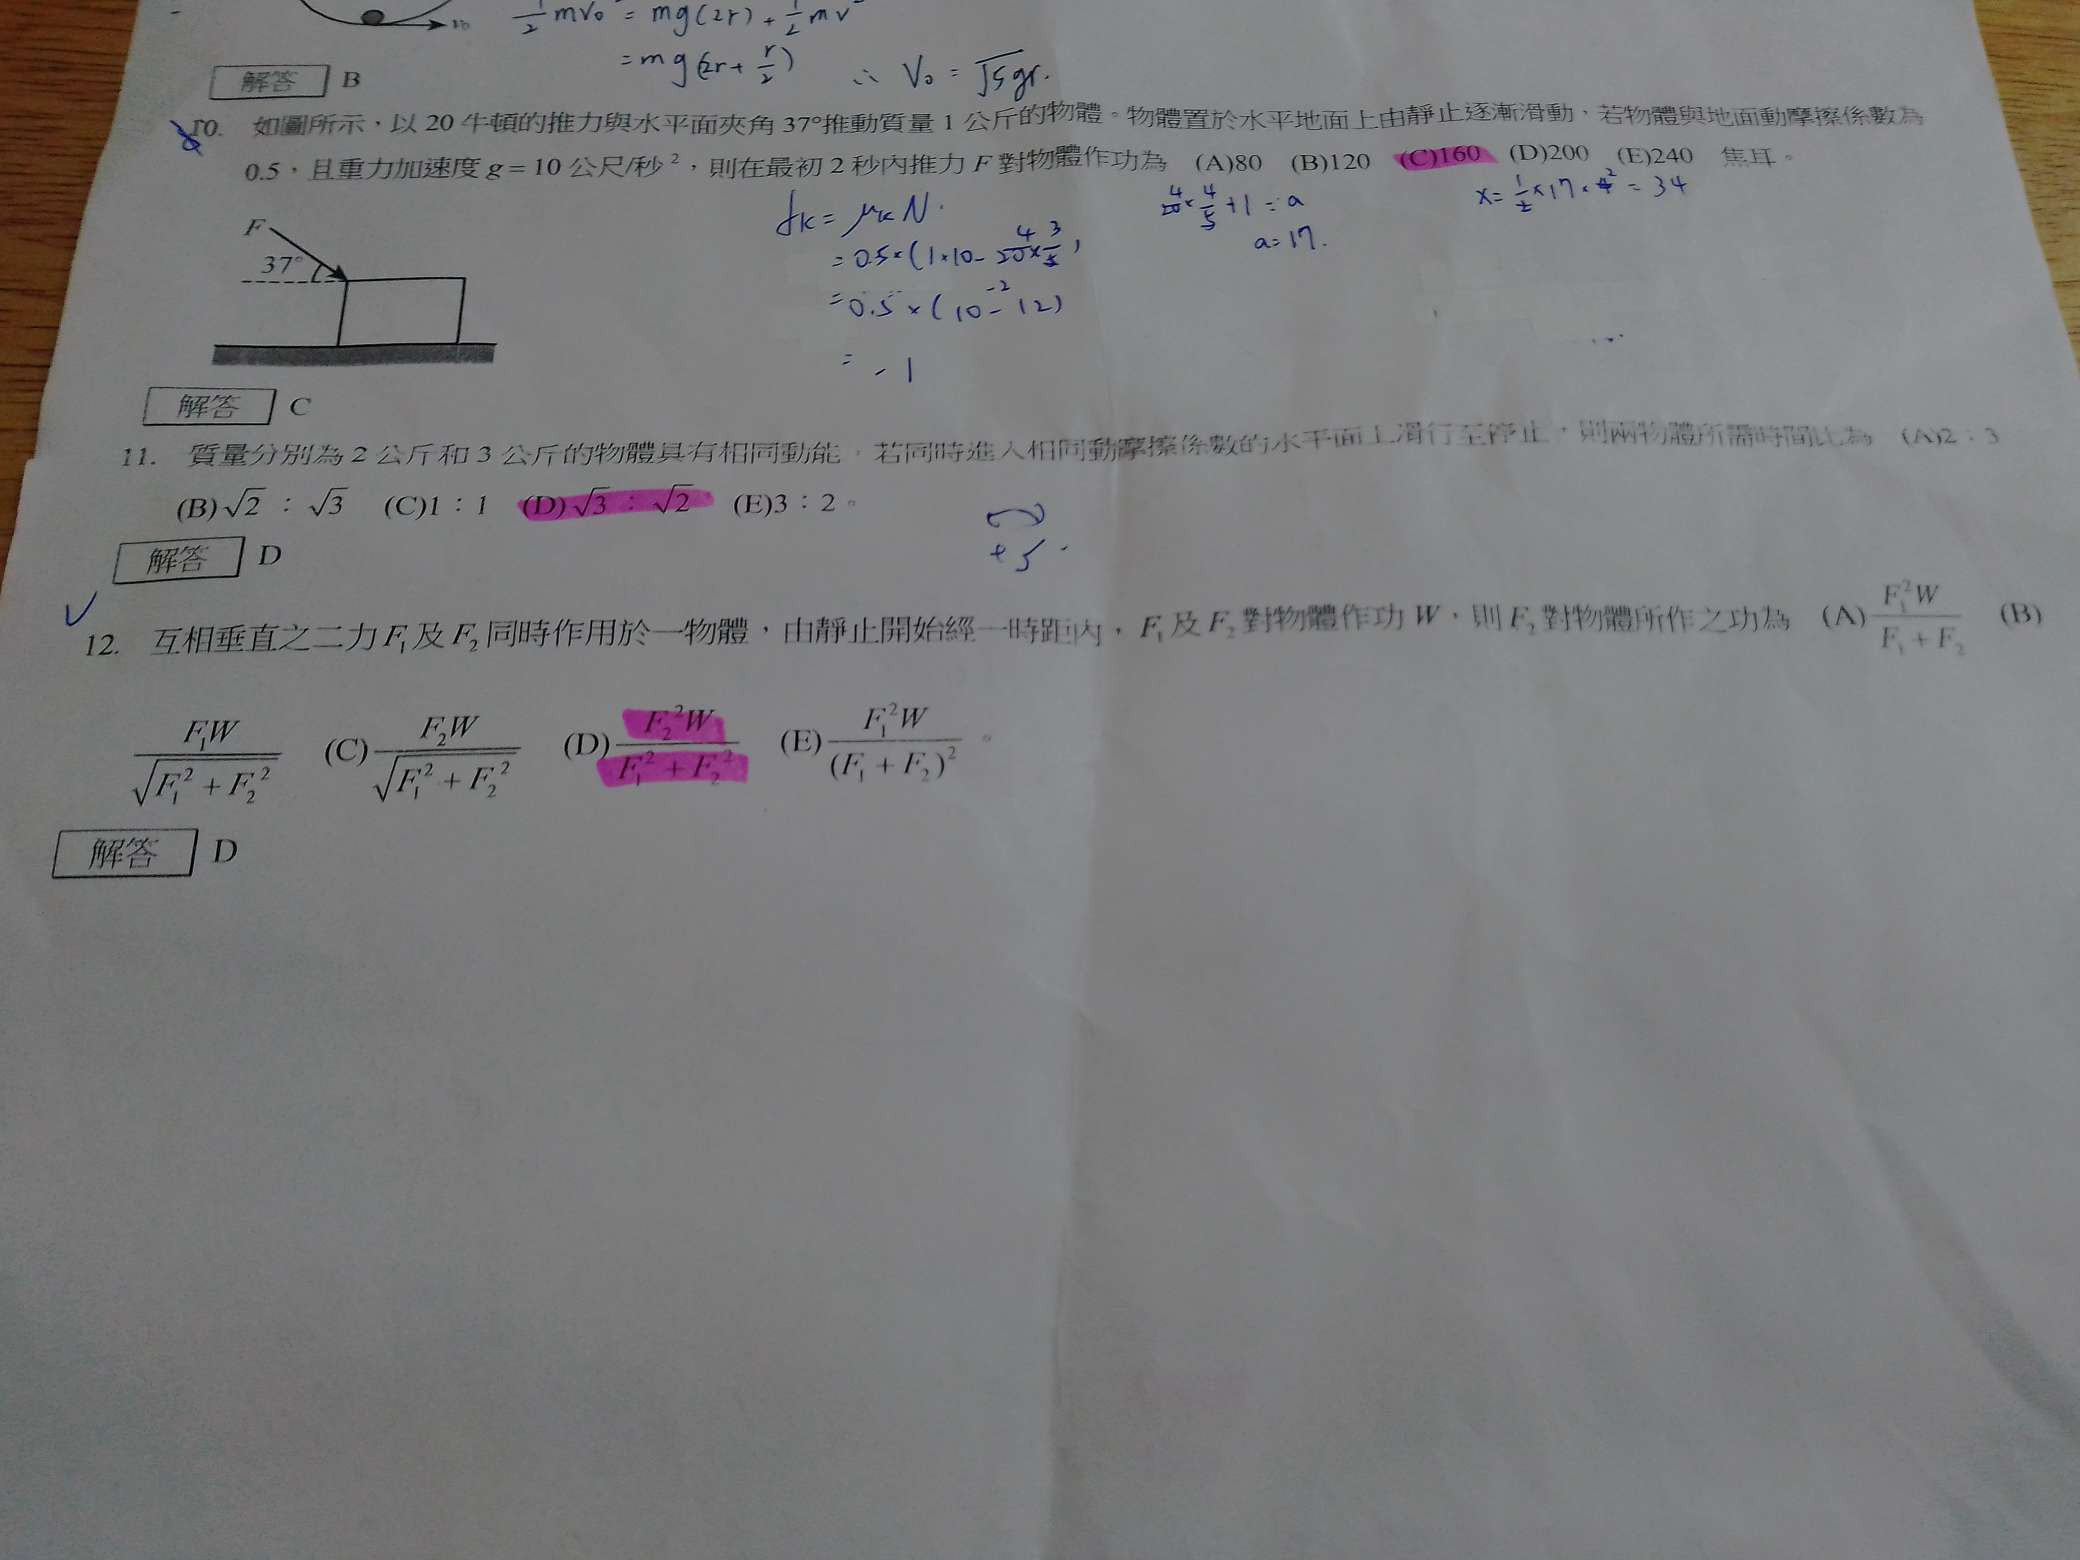 ½mv₀² = mg(2r) + ½mv²
= mg(2r + r/2) ∴ V₀ = √5gr.
解答 B
10. 如圖所示，以 20 牛頓的推力與水平面夾角 37°推動質量 1 公斤的物體。物體置於水平地面上由靜止逐漸滑動，若物體與地面動摩擦係數為
0.5，且重力加速度 g = 10 公尺/秒²，則在最初 2 秒內推力 F 對物體作功為 (A)80 (B)120 (C)160 (D)200 (E)240 焦耳。
fk = μk N.
= 0.5×(1×10 - 20×3/5)
= 0.5×(10 - 12)
= -1
20×4/5 + 1 = a
a = 17.
x = ½×17×2² = 34
F
37°
解答 C
11. 質量分別為 2 公斤和 3 公斤的物體具有相同動能，若同時進入相同動摩擦係數的水平面上滑行至停止，則兩物體所需時間比為 (A)2：3
(B)√2：√3 (C)1：1 (D)√3：√2 (E)3：2。
解答 D
12. 互相垂直之二力 F₁ 及 F₂ 同時作用於一物體，由靜止開始經一時距內，F₁ 及 F₂ 對物體作功 W，則 F₂ 對物體所作之功為 (A) F₁²W/(F₁ + F₂) (B)
F₁W/√(F₁² + F₂²) (C) F₂W/√(F₁² + F₂²) (D) F₂²W/(F₁² + F₂²) (E) F₁²W/(F₁ + F₂)²。
解答 D